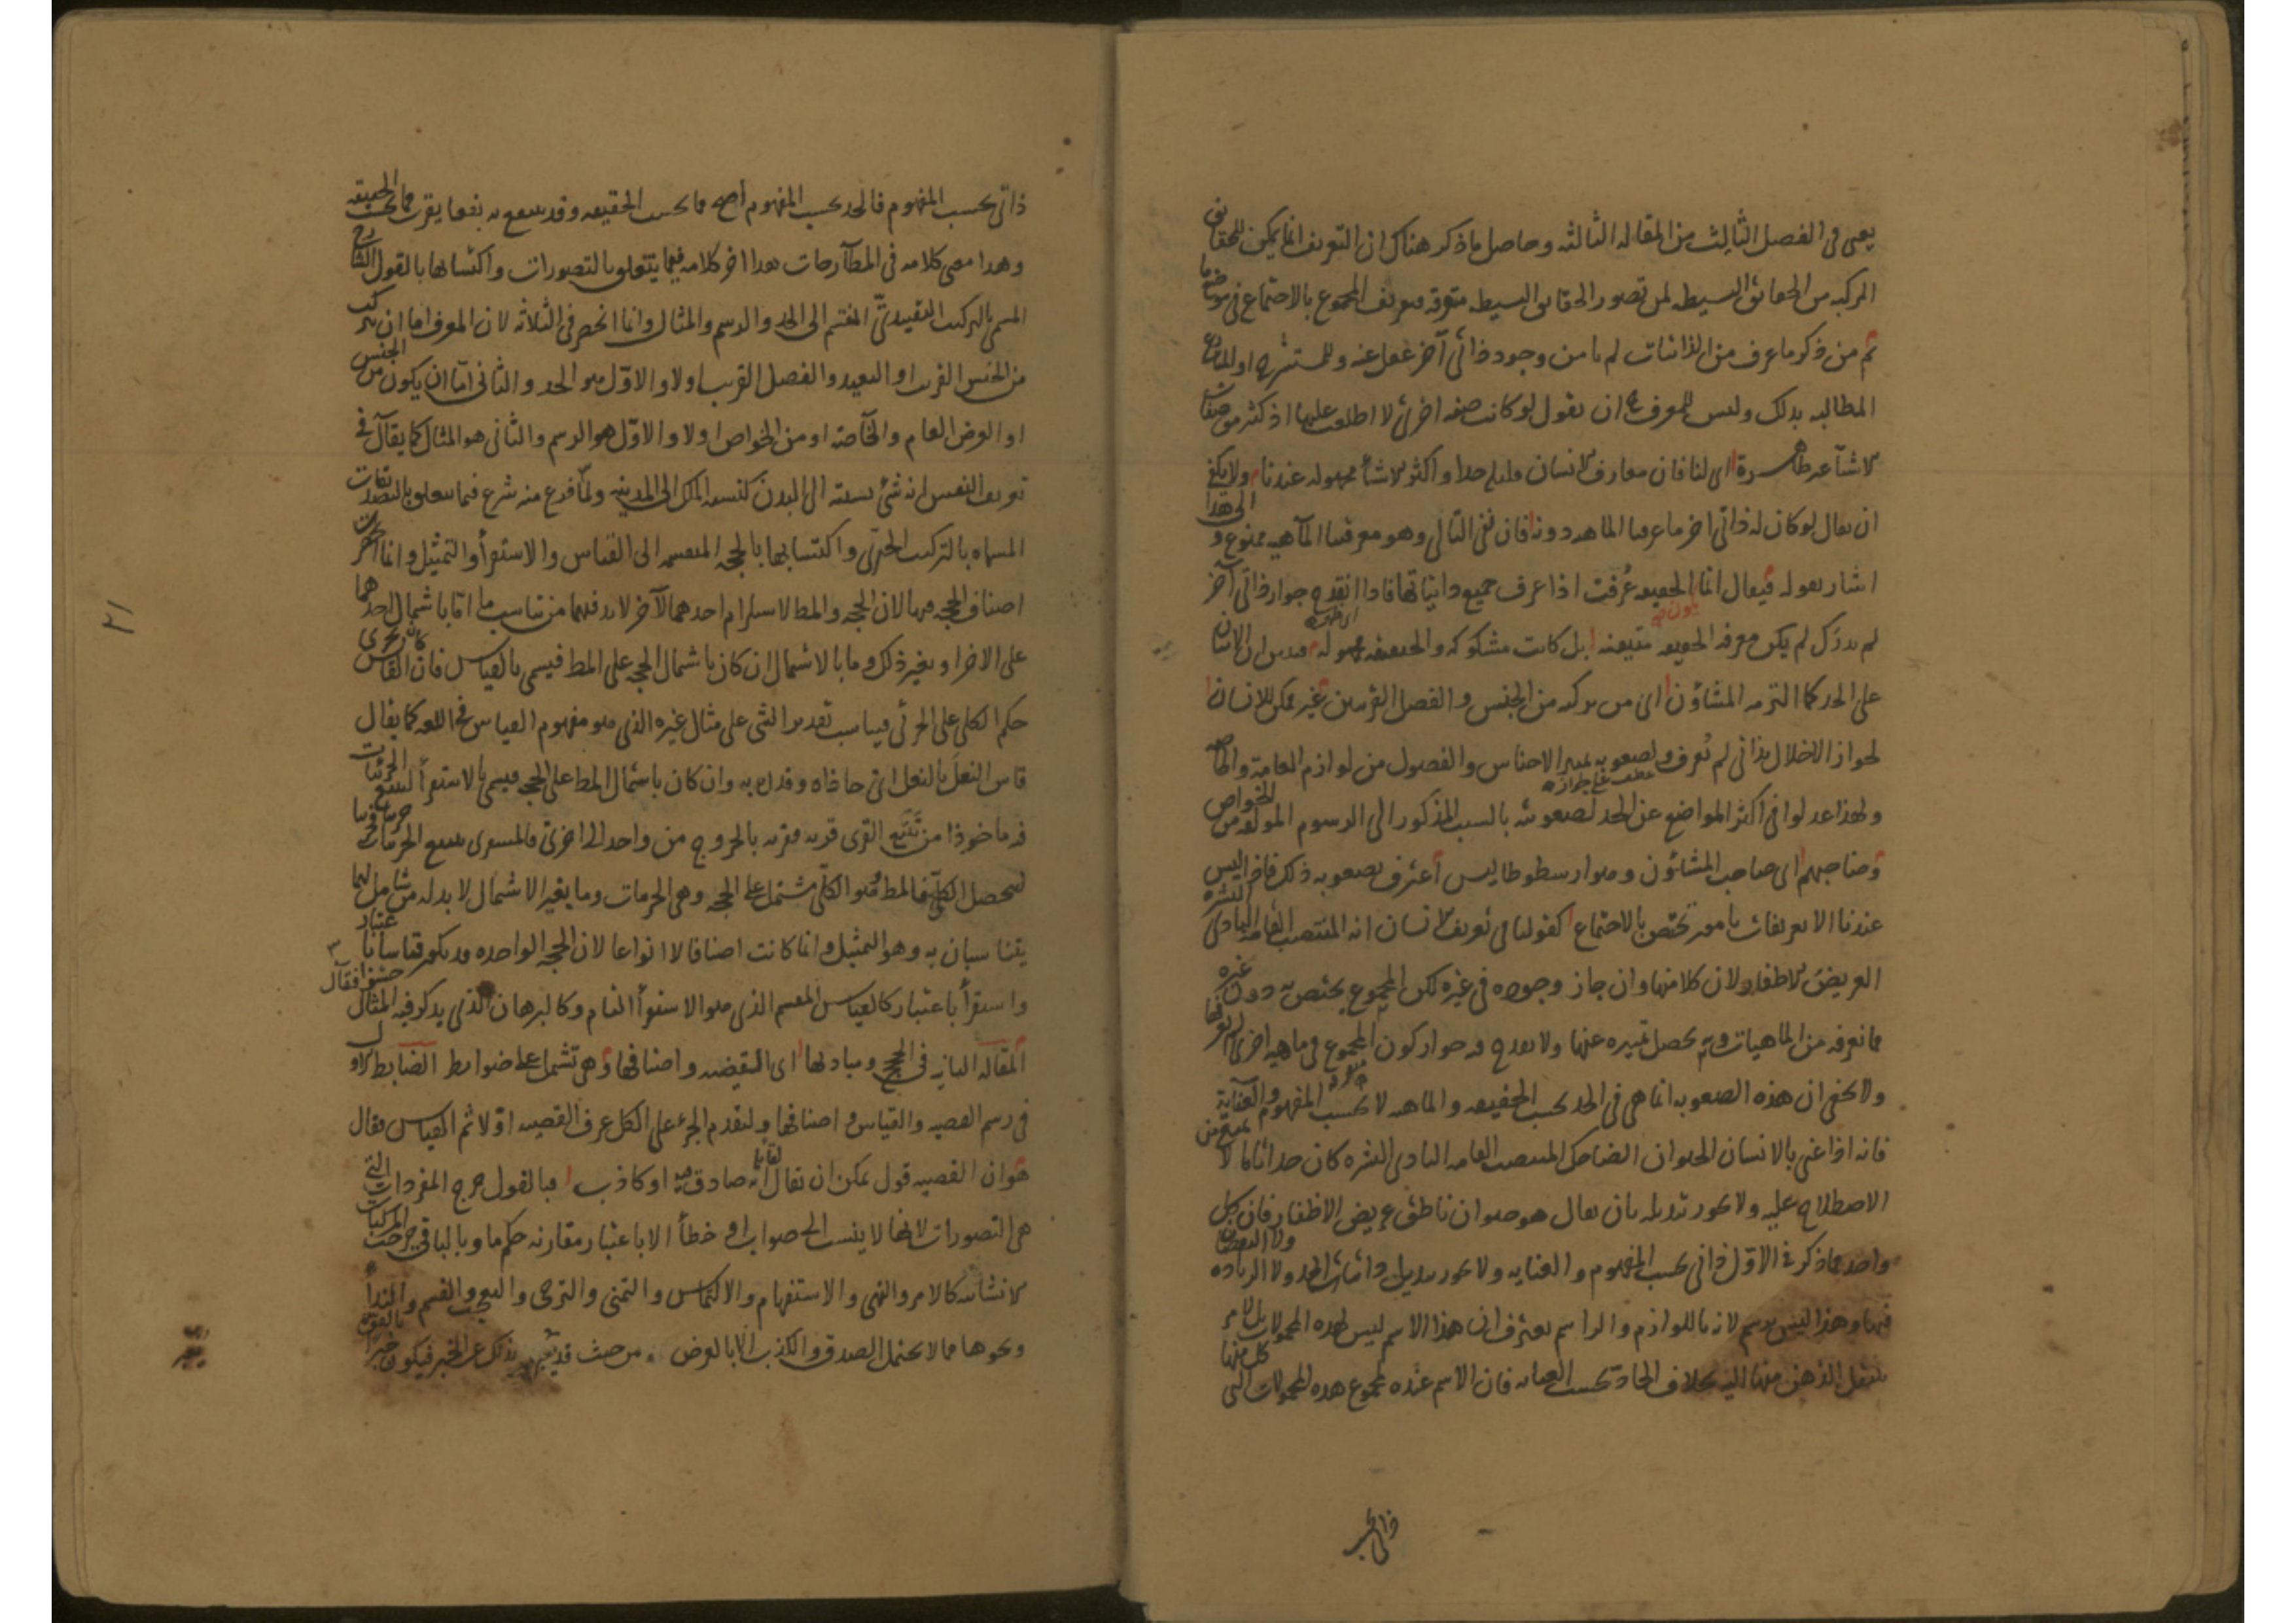 يعنى فى الفصل الثالث من المقاله الثالثه وحاصل ما ذكر هناك ان التعريف انما يمكن للحقايق
المركبه من الحقائق البسيطه لمن تصور الحقايق البسيطه متفرقه فيعرف المجموع بالاجتماع فى موضع ما
ثم من ذكر ما عرف من الذاتيات لم يامن وجود ذاتى آخر غفل عنه وللمستشرح او المنازع
المطالبه بذلك وليس للمعرف ح ان يقول لو كانت صفه اخرى لاطلعت عليها اذ كثير من صفات
الاشيآ غير ظاهرة اى لنا فان معارف الانسان قليله جدا واكثر الاشيأ مجهوله عندنا ولا يكفى
ان يقال لو كان له ذاتى اخر ما عرفنا الماهيه دونه فان نفى التالى وهو معرفتنا المآهيه ممنوع والى هذا
اشار بقوله فيقال انما الحقيقه عُرفت اذا عرف جميع ذاتياتها فاذا انقدح جواز ذاتى آخر
لم يدرك لم يكن معرفه الحقيقه متيقنه بل كانت مشكوكه والحقيقه مجهوله فتبين ان الاتيان
على الحد كما التزم به المشاؤن اى من تركبه من الجنس والفصل القريبين غير ممكن للانسان
لجواز الاخلال بذاتى لم يُعرف ولصعوبه تمييز الاجناس والفصول من لوازم العامة والخاصه
عطف على جواز
ولهذا عدلوا فى اكثر المواضع عن الحد لصعوبته بالسبب المذكور الى الرسوم المولفه من الخواص
وصاحبهم اى صاحب المشائون وهو ارسطوطاليس اعترف بصعوبه ذلك فاذا ليس
عندنا الا تعريفات بامور تختص بالاجتماع كقولنا فى تعريف الانسان انه المنتصب القامة البادى البشره
العريض الاظفار ولان كلا منها وان جاز وجوده فى غيره لكن المجموع يختص به دون غيره
مما نعرفه من الماهيات وبه يحصل تميزه عنها ولا يقدح فيه جواز كون المجموع فى ماهيه اخرى لم نعرفها
ولا يخفى ان هذه الصعوبه انما هى فى الحد بحسب الحقيقه والماهيه لا بحسب المفهوم والعنايه
فانه اذا عنى بالانسان الحيوان الضاحك المنتصب القامه البادى البشره كان حدا تاما لا
الاصطلاح عليه ولا يجوز تبديله بان يقال هو حيوان ناطق عريض الاظفار فان كل
واحد مما ذكر فى الاوّل ذاتى بحسب المفهوم والعنايه ولا يجوز تبديل ذاتيات الحد ولا الزياده ولا النقصان
فيها وهذا ليس برسم لانه باللوازم والراسم يعترف ان هذا الاسم ليس لهذه المحمولات بل لامر
ينتقل الذهن منها اليه بخلاف الحاد بحسب العنايه فان الاسم عنده لمجموع هذه المحمولات التى كل منها
ذاتى بحسب
ذاتى بحسب المفهوم فالحد بحسب المفهوم اصح مما بحسب الحقيقه وقد ينتفع به نفعا يقرب مما بحسب الحقيقه
وهذا معنى كلامه فى المطآرحات هذا اخر كلامه فيما يتعلق بالتصورات واكتسابها بالقول الشارح
المسمى بالتركيب التقييدىّ المنقسم الى الحد والرسم والمثال وانما انحصر فى الثلاثه لان المعرف اما ان يتركب
من الجنس القريب او البعيد والفصل القريب اولا والاوّل هو الحد والثانى امّا ان يكون من الجنس
او العرض العام والخآصة او من الخواص اولا والاوّل هو الرسم والثانى هو المثال كما يقآل فى
تعريف النفس انه شئ نسبته الى البدن كنسبه الملك الى المدينه ولمّا فرغ منه شرع فيما يتعلق بالتصديقات
المسماه بالتركيب الخبرى واكتسابها بالحجه المنقسمه الى القياس والاستقرأ والتمثيل وانما انحصرت
اصناف الحجه فيها لان الحجه والمط لاستلزام احدهما الآخر لا بد فيهما من تناسب ما اما باشتمال احدهما
على الاخر او بغير ذلك وما بالاشتمال ان كان باشتمال الحجه على المط فيسمى بالقياس فان القياس
حكم الكلى على الجزئى فيناسب تقدير الشى على مثال غيره الذى هو مفهوم القياس فى اللغه كما يقال
قاس النعل بالنعل اى حاذاه وقدره به وان كان باشتمال المط على الحجه فيسمى بالاستقرأ لتتبع الجزئيات
فيه ماخوذا من تتبّع القرى قريه فقريه بالخروج من واحده الى اخرى فالمستقرى يتتبع الجزئيات
ليحصل الكلىّ فالمط هو الكلى مشتمل على الحجه وهى الجزئيات وما بغير الاشتمال لا بد له من شامل لهما
يتناسبان به وهو التمثيل وانما كانت اصنافا لا انواعا لان الحجه الواحده قد يكون قياسا باعتبار
واستقرأ باعتبار كالقياس المقسم الذى هو الاستقرأ التام وكالبرهان الذى يذكر فيه المثال حشوا فقال
المقاله الثانيه فى الحجج ومباديها اى القضيه واصنافها وهى تشتمل على ضوابط الضابط الاول
فى رسم القضيه والقياس واصنافها ولتقدم الجزء على الكل عرف القضيه اوّلا ثم القياس فقال
هو ان القضيه قول يمكن ان يقال لقائله انه صادق فيه او كاذب فبالقول خرج المفردات التى
هى التصورات لانها لا ينسب الى صواب او خطأ الا باعتبار مقارنه حكم ما وبالباقى خرجت المركبات
الانشائيه كالامر والنهى والاستفهام والالتماس والتمنى والترجى والتعجب والقسم والندأ
ونحوها مما لا يحتمل الصدق والكذب الا بالعرض من حيث قد
٢١